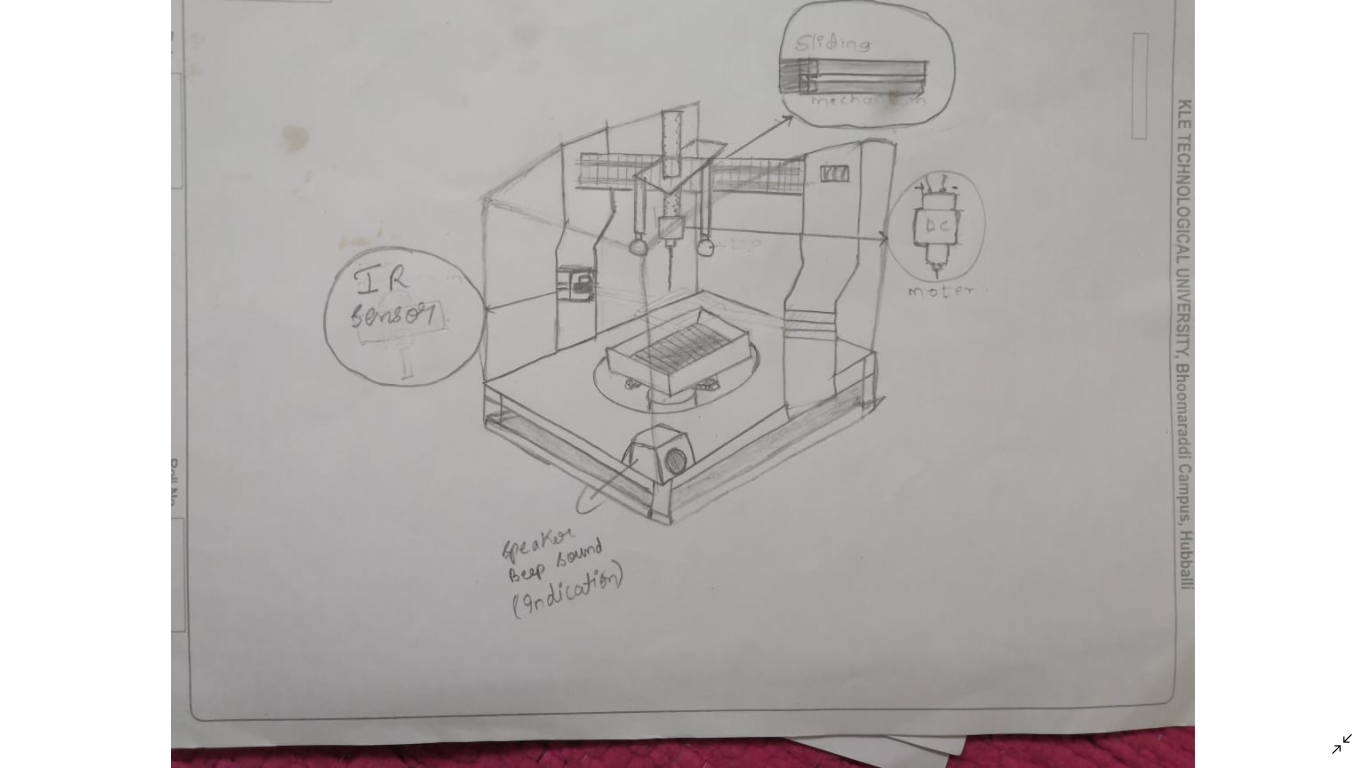 Sliding
mechanism
DC
moter
IR
Sensor
Speaker
Beep Sound
(Indication)
KLE TECHNOLOGICAL UNIVERSITY, Bhoomaraddi Campus, Hubballi